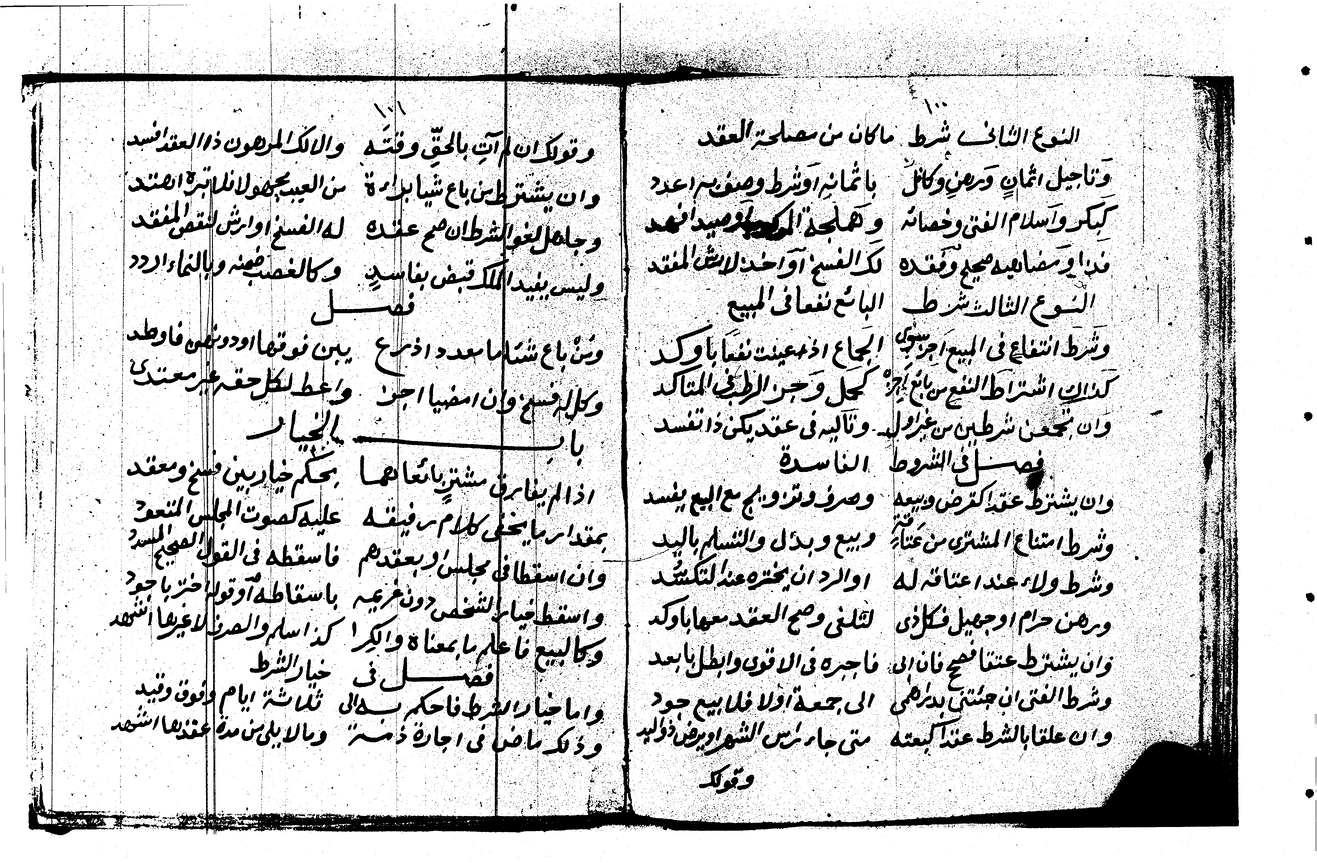 ١٠٠
النوع الثاني شرط ما كان من مصلحة العقد
وتاجيل اثمان ورهن وكافل باثمانه او شرط وصف به اعدد
كبكر واسلام الفتى وخصائه وهملجة او صيد افهد
فذا ومضاهيه صحيح وفقده لك الفسخ او اخذ لارش المفقد
النوع الثالث شرط البائع نفعا في المبيع
وشرط انتفاع في المبيع اجز سوى الجماع اذا عينت نفعا باوكد
كذاك اشتراط النفع من بائع اجز كحمل وجز الرطب في المتاكد
وان تجمعن شرطين من غير اول وتاليه في عقد يكن ذا تفسد
فصل في الشروط الفاسدة
وان يشترط عقدا كقرض وبيعه وصرف وتزويج مع البيع يفسد
وشرط امتناع المشتري من عتاقة وبيع وبذل والتسلم باليد
وشرط ولاء عند اعتاقه له او الرد ان يختره عند التكسد
ورهن حرام او جهيل فكل ذي لتلغى وصح العقد معها باوكد
وان يشترط عتقا فصحح فان ابى فاجبره في الاقوى وابطل بابعد
وشرط الفتى ان جئتني بدرهمي الى جمعة او لا فلا بيع جود
وان علقا بالشرط عقدا كبعته متى جاء راس الشهر او يرض ذو اليد
وقولك
١٠١
وقولك ان لم آت بالحق وقته والا لك المرهون ذا العقد افسد
وان يشترط من باع شيا براءة من العيب مجهولا فلا تبره اصتد
وجاهل لغو الشرط ان صح عقده له الفسخ او ارش لنقص المفقد
وليس يفيد الملك قبض بفاسد وكالغصب ضمنه وبالنماء اردد
فصل
ومن باع شيئا ما معدد اذرع يبن فوقها او دونهن فاوطد
وكل له فسخ وان امضيا اجز واعط لكل حقه غير معتدى
باب الخيار
اذا لم يفارق مشتر بائعا هما بحكم خيار بين فسخ ومعقد
بمقدار ما يخفى كلام رفيقه عليه كصوت المجلس المتعود
وان اسقطا في مجلس او بعقدهم فاسقطه في القول الصحيح المسدد
واسقط خيار الشخص دون غريمه باسقاطه او قوله اختر باجود
وكالبيع فاعلم ما بمعناه والكرا كذا سلم والصرف لا غيرها اشهد
فصل في خيار الشرط
واما خيار الشرط فاحكم به الى ثلاثة ايام وفوق وقيد
وذلك ماض في اجارة ذمة وما لا يلي من مدة عقدها اشهد